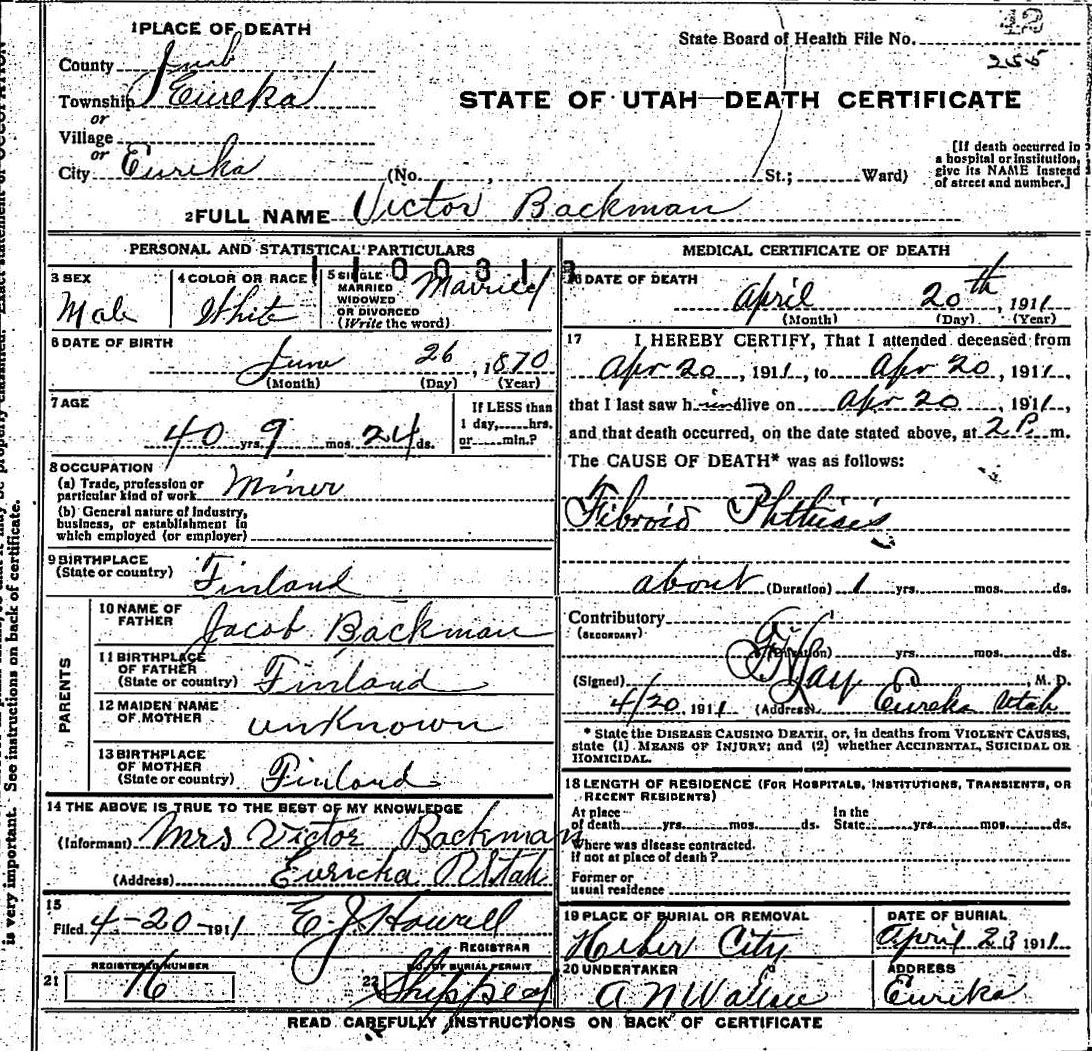 1 PLACE OF DEATH
County Juab
Township Eureka
or
Village
or
City Eureka (No. , St.; Ward)
State Board of Health File No. 42
255
STATE OF UTAH—DEATH CERTIFICATE
[If death occurred in
a hospital or institution,
give its NAME instead
of street and number.]
2 FULL NAME Victor Backman
PERSONAL AND STATISTICAL PARTICULARS
3 SEX
Male
4 COLOR OR RACE
White
5 SINGLE
MARRIED
WIDOWED
OR DIVORCED
(Write the word)
Married
6 DATE OF BIRTH
June 26, 1870
(Month) (Day) (Year)
7 AGE
40 yrs. 9 mos. 24 ds.
If LESS than
1 day, hrs.
or min.?
8 OCCUPATION
(a) Trade, profession or
particular kind of work Miner
(b) General nature of Industry,
business, or establishment in
which employed (or employer)
9 BIRTHPLACE
(State or country) Finland
PARENTS
10 NAME OF
FATHER Jacob Backman
11 BIRTHPLACE
OF FATHER
(State or country) Finland
12 MAIDEN NAME
OF MOTHER unknown
13 BIRTHPLACE
OF MOTHER
(State or country) Finland
14 THE ABOVE IS TRUE TO THE BEST OF MY KNOWLEDGE
(Informant) Mrs Victor Backman
(Address) Eureka Utah
15
Filed 4-20-1911 E. J. Howell
REGISTRAR
21 REGISTERED NUMBER
16
22 NO. OF BURIAL PERMIT
Shipped
MEDICAL CERTIFICATE OF DEATH
16 DATE OF DEATH
April 20th, 1911
(Month) (Day) (Year)
17 I HEREBY CERTIFY, That I attended deceased from
Apr 20, 1911, to Apr 20, 1911,
that I last saw h im alive on Apr 20, 1911,
and that death occurred, on the date stated above, at 2 P. m.
The CAUSE OF DEATH* was as follows:
Fibroid Phthisis
about (Duration) 1 yrs. mos. ds.
Contributory
(SECONDARY)
(Duration) yrs. mos. ds.
(Signed) , M. D.
4/20, 1911 (Address) Eureka Utah
* State the DISEASE CAUSING DEATH, or, in deaths from VIOLENT CAUSES,
state (1) MEANS OF INJURY; and (2) whether ACCIDENTAL, SUICIDAL OR
HOMICIDAL.
18 LENGTH OF RESIDENCE (FOR HOSPITALS, INSTITUTIONS, TRANSIENTS, OR
RECENT RESIDENTS)
At place
of death yrs. mos. ds.
In the
State yrs. mos. ds.
Where was disease contracted.
if not at place of death?
Former or
usual residence
19 PLACE OF BURIAL OR REMOVAL
Heber City
DATE OF BURIAL
April 23 1911
20 UNDERTAKER
A N Wallace
ADDRESS
Eureka
READ CAREFULLY INSTRUCTIONS ON BACK OF CERTIFICATE
is very important. See instructions on back of certificate.